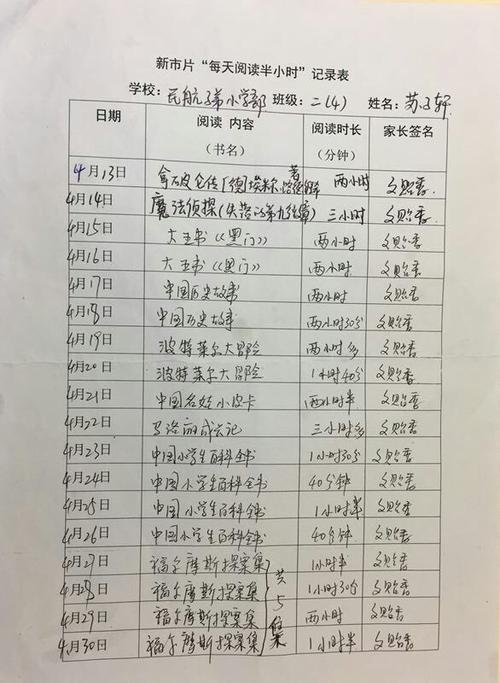 新市片“每天阅读半小时”记录表
学校：民航子弟小学部 班级：二（4） 姓名：苏子轩
日期 阅读 内容 阅读时长 家长签名
（书名） （分钟）
4月13日 拿破仑传「德」埃米尔 著 两小时 文贻香
4月14日 魔法侦探（失落的第九徽章） 三小时 文贻香
4月15日 大王书《黑门》 两小时 文贻香
4月16日 大王书《黑门》 两小时 文贻香
4月17日 中国历史故事 两小时 文贻香
4月18日 中国历史故事 两小时30分 文贻香
4月19日 波特莱尔大冒险 两小时多 文贻香
4月20日 波特莱尔大冒险 1小时40分 文贻香
4月21日 中国名娃小皮卡 两小时半 文贻香
4月22日 马洛丽成长记 三小时多 文贻香
4月23日 中国小学生百科全书 1小时30分 文贻香
4月24日 中国小学生百科全书 40分钟 文贻香
4月25日 中国小学生百科全书 1小时半 文贻香
4月26日 中国小学生百科全书 40分钟 文贻香
4月27日 福尔摩斯探案集 1小时半 文贻香
4月28日 福尔摩斯探案集 共5集 1小时30分 文贻香
4月29日 福尔摩斯探案集 两小时 文贻香
4月30日 福尔摩斯探案集 1小时半 文贻香